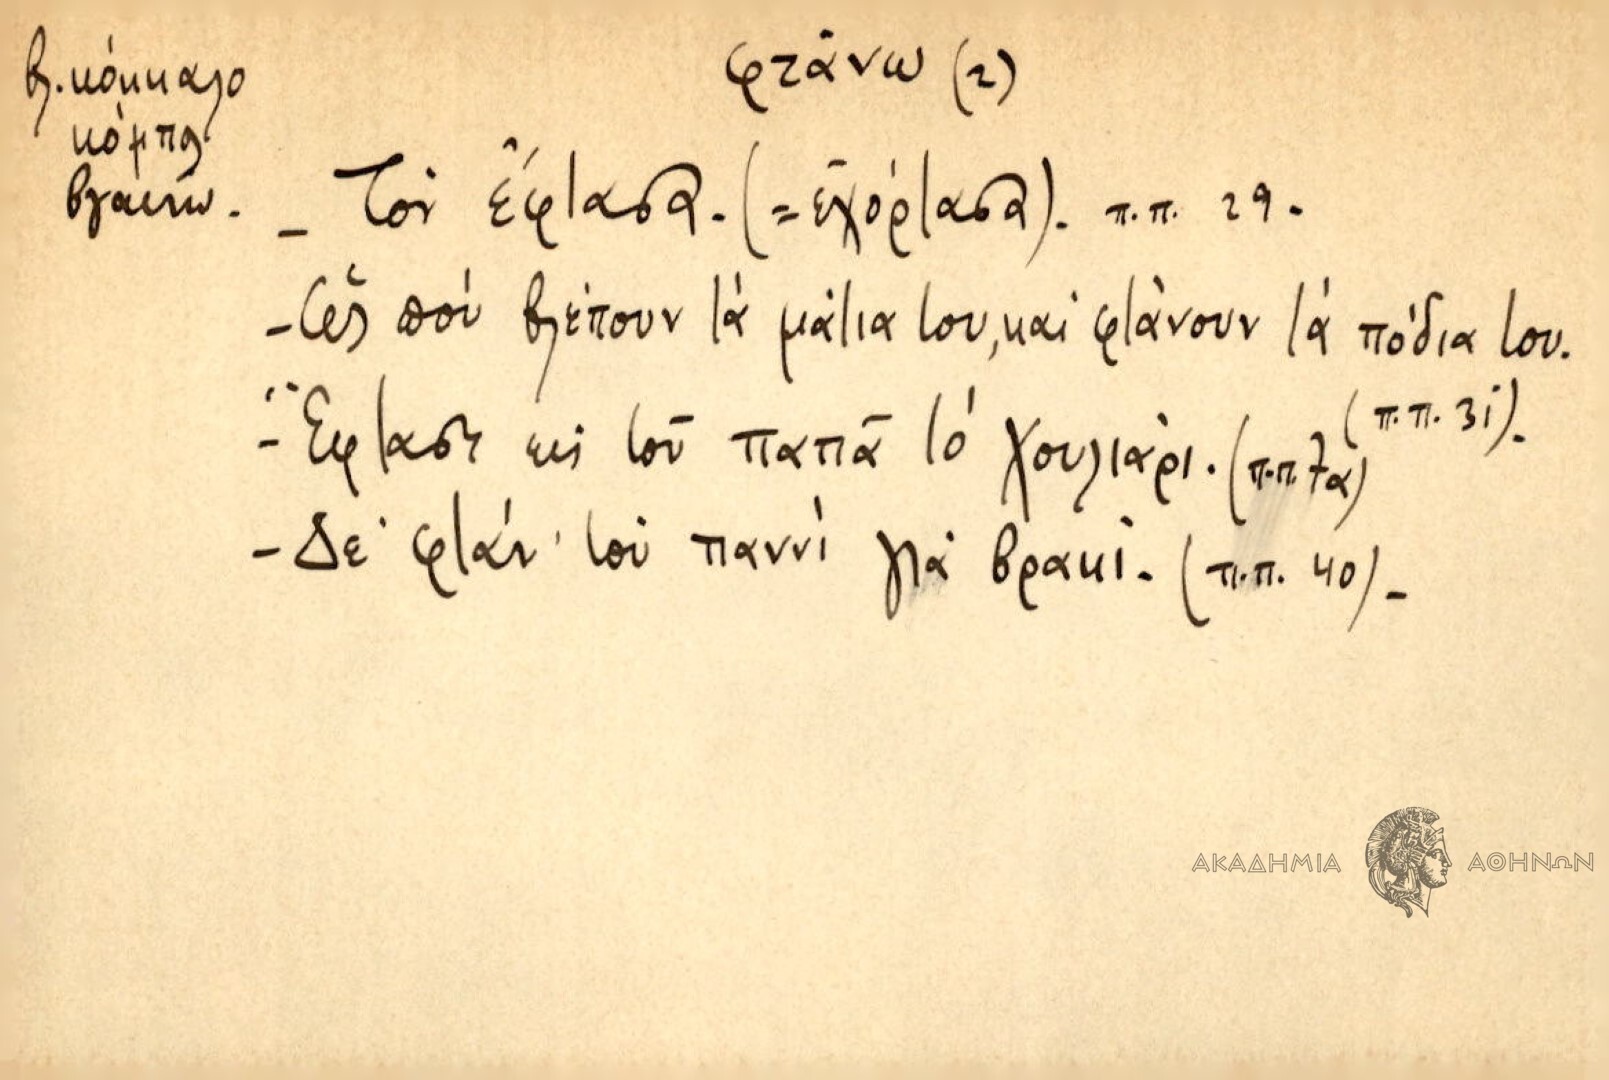 βλ. κόκκαλο
κόμπος
βγαίνω.
φτάνω (2)
– Τὸν ἔφτασα. (=ἐχόρτασα). π.π. 29.
– Ὡς ποὺ βλέπουν τὰ μάτια του, καὶ φτάνουν τὰ πόδια του.
(π.π. 31).
– Ἔφτασε κὶ τοῦ παπᾶ τὸ χουλιάρι. (π.π. 7α)
– Δὲ φτάν' τοὺ παννὶ γιὰ βρακί. (π.π. 40). –
ΑΚΑΔΗΜΙΑ ΑΘΗΝΩΝ